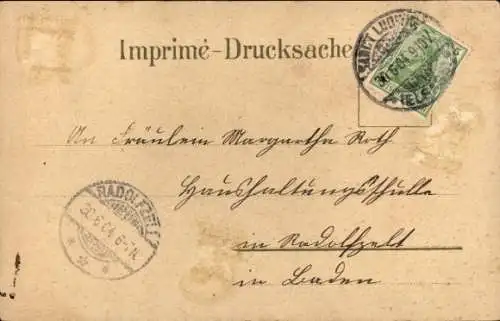 Imprimé-Drucksache
SANCT LUDWIG
30.6.04.
(ELS.)
An Fräulein Margartha Roth
Haushaltungsschulle
in Radolfzelt
in Baden
RADOLFZELL
30.6.04. 6-7N.